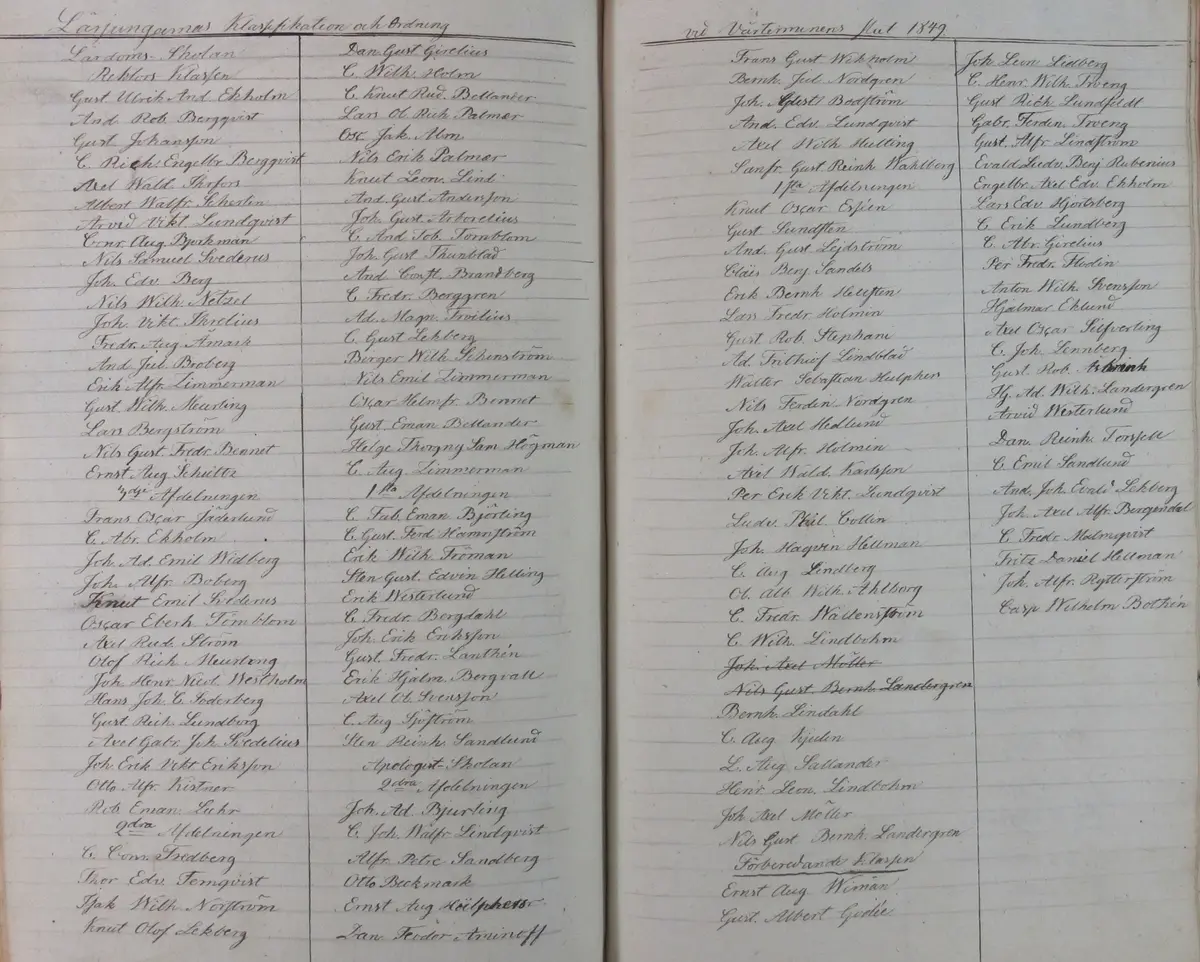 Lärjungarnas Klassifikation och Ordning
Lärdoms Skolan
Rektors Klassen
Gust Ulrik And. Ekholm
And Rob. Bergqvist
Gust Johansson
C. Rich. Engelbr. Bergqvist
Axel Wald. Thorfors
Albert Walfr. Schersten
Arvid Vikt Lundqvist
Conr. Aug. Björkman
Nils Samuel Svederus
Joh. Edv. Berg
Nils Wilh. Netzel
Joh. Vikt. Threlius
Fredr. Aug Åmark
And. Jul. Broberg
Erik Alfr. Zimmerman
Gust. Wilh. Meurling
Lars Bergström
Nils Gust Fredr. Bennet
Ernst Aug Schultz
3dje Afdelningen
Frans Oscar Jäderlund
C. Abr. Ekholm
Joh. Ad. Emil Widberg
Joh. Alfr. Boberg
Knut Emil Svederus
Oscar Eberh Törnblom
Axel Rud. Ström
Olof Rich Meurling
Joh Henr. Westholm
Hans Joh. C. Söderberg
Gust Rich. Lundborg
Axel Gabr. Joh. Svedelius
Joh Erik Vikt Eriksson
Otto Alfr Kistner
Rob. Eman. Luhr
2dra Afdelningen
C. Conr. Fredberg
Thor Edv. Ternqvist
Isak Wilh Norström
Knut Olof Lekberg
Dan. Gust Girelius
C. Wilh. Holm
C. Knut Rud. Bellander
Lars Ol. Rich Palmær
Osc Jak Alm
Nils Erik Palmær
Knut Leon. Lind
And. Gust Andersson
Joh. Gust Arborelius
C. And Tob. Törnblom
Joh. Gust Thunblad
And Const. Brandberg
C. Fredr. Berggren
Ad. Magn. Troilius
C. Gust Lekberg
Berger Wilh Schenström
Nils Emil Zimmerman
Oscar Helmfr. Bennet
Gust. Eman Bellander
Helge Thorgny Sam Högman
C. Aug. Zimmerman
1sta Afdelningen
C. Fab. Eman Björling
C. Gust. Ferd. Hamnström
Erik Wilh. Fröman
Sten Gust. Edvin Helling
Erik Westerlund
C. Fredr. Bergdahl
Joh. Erik Eriksson
Gust. Fredr. Lanthén
Erik Hjalm. Bergvall
Axel Ol. Svensson
C. Aug Sjöström
Sten Reinh. Sandlund
Apologist-Skolan
2dra Afdelningen
Joh. Ad. Bjurling
C. Joh. Walfr. Lindqvist
Alfr. Petre Sandberg
Otto Beckmark
Ernst Aug Hülphers
Dan. Feodor Aminoff
vid Vårterminens slut 1849
Frans Gust Wikholm
Bernh. Jul. Nordgren
Joh. Albert Bodström
And. Edv. Lundqvist
Axel Wilh Helling
Sanfr. Gust Reinh Wahlberg
1sta Afdelningen
Knut Oscar Essén
Gust Sundsten
And. Gust Leijdström
Claës Benj Sandels
Erik Bernh Hellsten
Lars Fredr Holmin
Gust Rob. Stephani
Ad. Frithiof Lindblad
Walter Sebastian Hülphers
Nils Ferdin. Nordgren
Joh. Axel Hedlund
Joh. Alfr. Holmin
Axel Wald. Karlsson
Per Erik Vikt. Lundqvist
Ludv. Phil Collin
Joh. Haqvin Hellman
C. Aug Lindberg
Ol. Alb. Wilh. Ahlborg
C. Fredr. Wallenström
C. Wilh. Lindbohm
Joh. Axel Möller
Nils Gust Bernh. Landergren
Bernh. Lindahl
C. Aug Kjulen
L. Aug Sallander
Henr. Leon. Lindbohm
Joh Axel Möller
Nils Gust Bernh. Landergren
Förberedande Klassen
Ernst Aug Wiman
Gust. Albert Godée
Joh. Leon Sedberg
C. Henr. Wilh. Troeng
Gust Rich Lundfeldt
Gabr. Ferdin. Troeng
Gust. Alfr Lindström
Evald Ludv. Benj Rubenius
Engelbr. Axel Edv. Ekholm
Lars Edv. Hjortsberg
C. Erik Lundberg
C. Abr. Girelius
Per Fredr. Flodin
Anton Wilh Svensson
Hjalmar Eklund
Axel Oscar Silfverling
C. Joh. Lennberg
Gust. Rob.
Hg. Ad. Wilh. Landergren
Arvid Westerlund
Dan. Reinh Forssell
C. Emil Sandlund
And. Joh. Evald Lekberg
Joh. Axel Alfr. Bergendal
C. Fredr. Malmqvist
Fritz Daniel Hellman
Joh. Alfr. Ryttterström
Casp Wilhelm Bothén